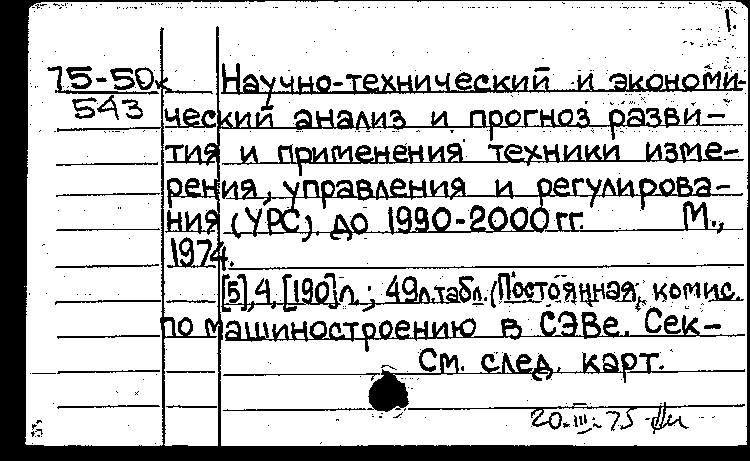 1.
75-50к Научно-технический и экономи-
543 ческий анализ и прогноз разви-
тия и применения техники изме-
рения, управления и регулирова-
ния (УРС). до 1990-2000 гг. М.,
1974.
[5], 4, [190] л.; 49 л. табл. (Постоянная комис.
по машиностроению в СЭВе. Сек-
См. след. карт.
20.III.75